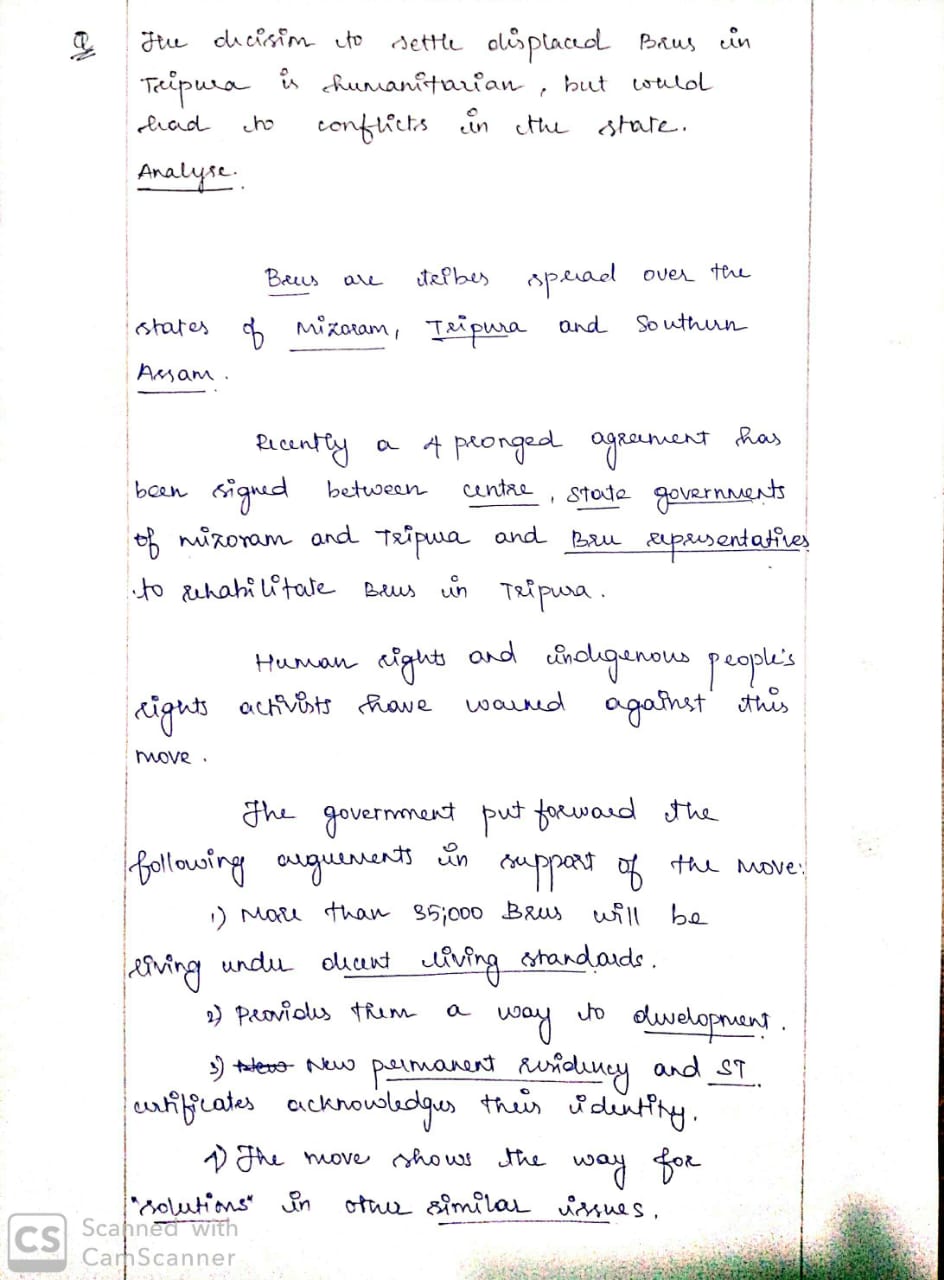 Q The decision to settle displaced Brus in
Tripura is humanitarian, but would
lead to conflicts in the state.
Analyse.
Brus are tribes spread over the
states of Mizoram, Tripura and Southern
Assam.
Recently a 4 pronged agreement has
been signed between centre, state governments
of mizoram and Tripura and Bru representatives
to rehabilitate Brus in Tripura.
Human rights and indigenous people's
rights activists have warned against this
move.
The government put forward the
following arguements in support of the move:
1) More than 35,000 Brus will be
living under decent living standards.
2) Provides them a way to development.
3) New permanent residency and ST
certificates acknowledges their identity.
4) The move shows the way for
"solutions" in other similar issues.
CS Scanned with
CamScanner